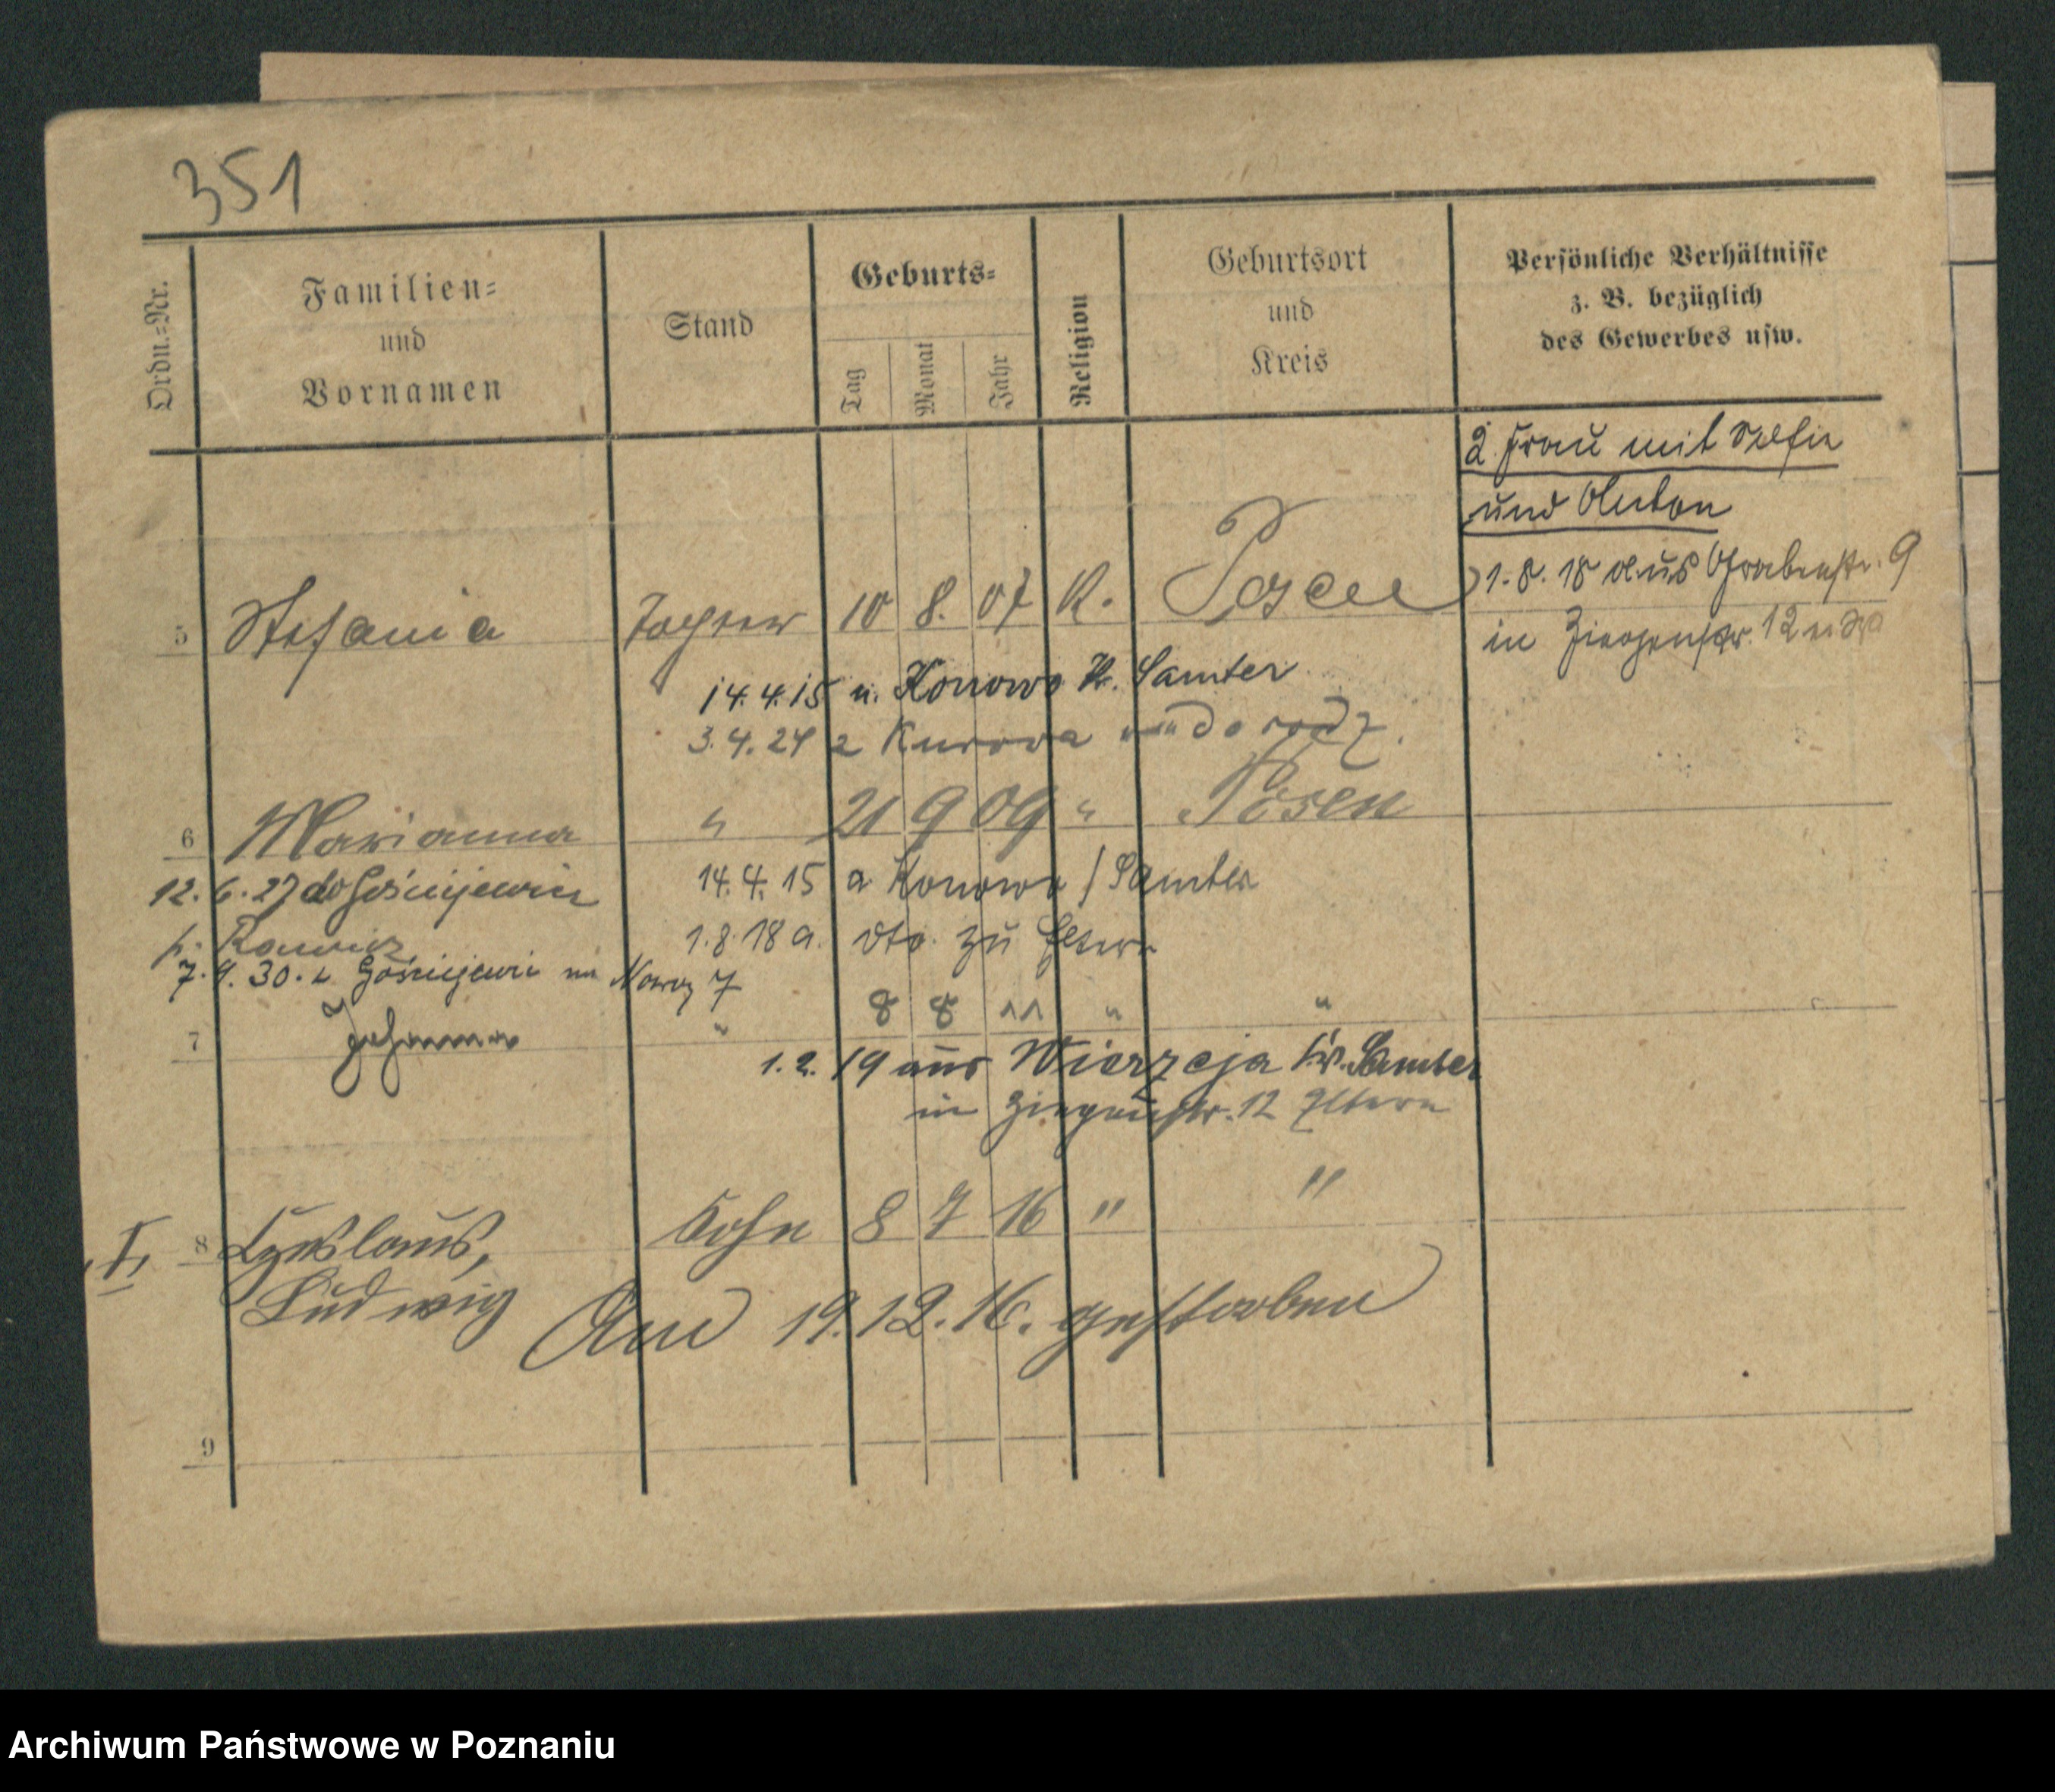 351
Ordn.=Nr.
Familien=
und
Vornamen
Stand
Geburts=
Tag
Monat
Jahr
Religion
Geburtsort
und
Kreis
Persönliche Verhältnisse
z. B. bezüglich
des Gewerbes usw.
2. Frau mit
und Anton
5 Stefania Tochter 10 8. 07 K. Posen
1.8.18 aus Grabenstr. 9
in Ziegenstr. 12
14.4.15 n. Konowo Kr. Samter
3.4.24 z Kurowa do rodz.
6 Marianna " 21 9 09 " Posen
12.6.27 do Gościejewic
14.4.15 a Konowo / Samter
p. Rawicz
1.8.18 a. dto. zu Eltern
7.9.30. z Gościejewic na Nowy 7
7 Johanna " 8 8 11 " "
1.2.19 aus Wierzeja Kr. Samter
in Ziegenstr. 12 Eltern
I, 8 Czeslaus, Sohn 8 7 16 " "
Ludwig
Am 19.12.16. gestorben
9
Archiwum Państwowe w Poznaniu